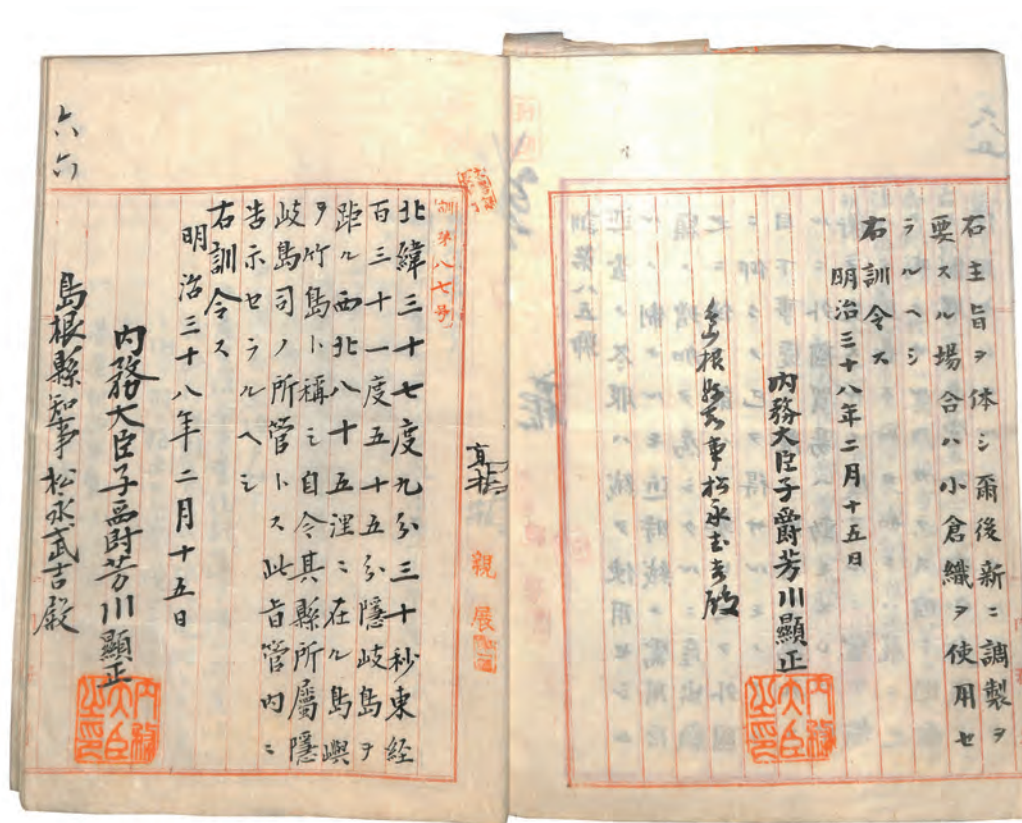 右主旨ヲ体シ爾後新ニ調製ヲ
要スル場合ハ小倉織ヲ使用セ
ラルヘシ
右訓令ス
明治三十八年二月十五日
内務大臣子爵芳川顯正
内務大臣之印
島根縣知事松永武吉殿
親展
六六
訓第八七号
北緯三十七度九分三十秒東経
百三十一度五十五分隠岐島ヲ
距ル西北八十五浬ニ在ル島嶼
ヲ竹島ト稱シ自今其縣所屬隱
岐島司ノ所管トス此旨管内ニ
告示セラルヘシ
右訓令ス
明治三十八年二月十五日
内務大臣子爵芳川顯正
内務大臣之印
島根縣知事松永武吉殿